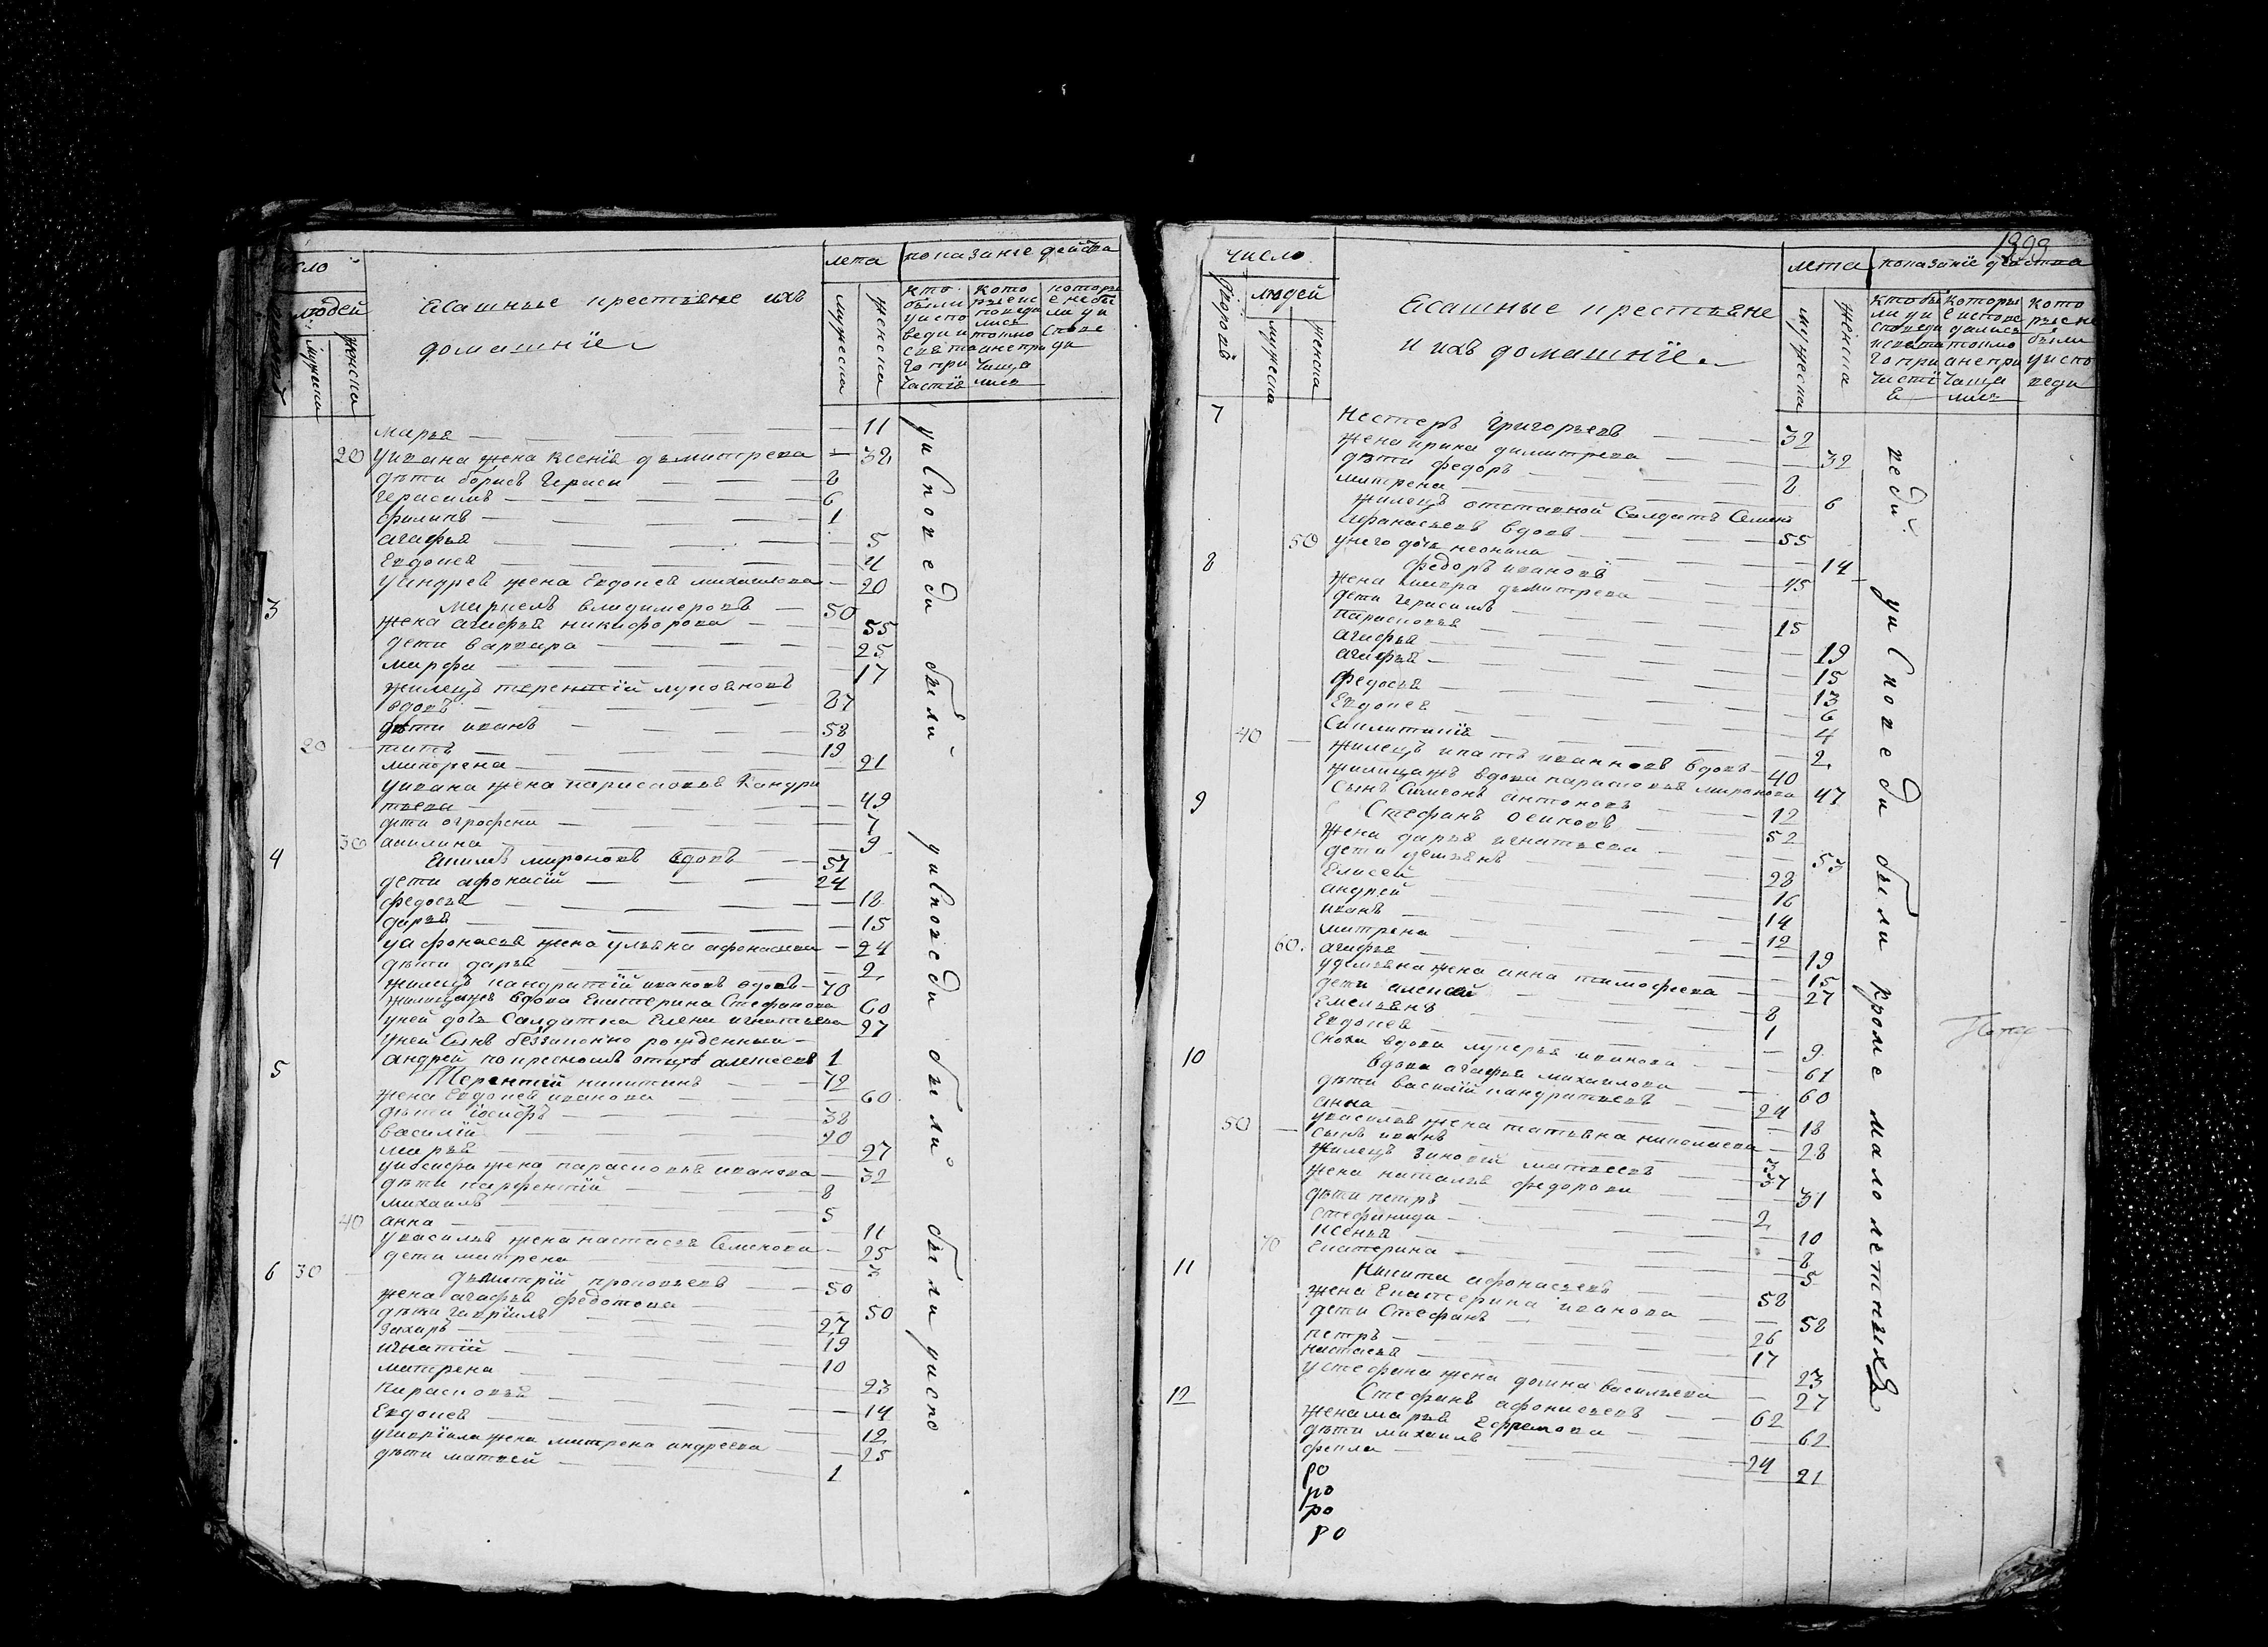 число
людей
мужеска
женска
Ясашные крестьяне ихъ
домашнїе
лета
мужеска
женска
показанїе действа
кто были уиспо веди и свята го при частїя
кото рыеис поведа лись токмо ане при чаща лись
которы е небы ли уи спове ди
марья — 11
20 уивана жена ксенїя дъмитрева — 32
дѣти борисъ Гераси — 8
герасимъ — 6
филипъ — 1
агафья — 5
Евдокея — 4
уандрея жена Евдокея михаилова — 20
3 Маркелъ владимеровъ — 50
жена агафья никифорова — 55
дети варвара — 25
марфа — 17
жилецъ терентїй лукояновъ
вдовъ — 87
дѣти иванъ — 58
20 титъ — 19
матрена — 21
уивана жена парасковья Кондра
тьева — 49
дети огрофена — 7
30 акилина — 9
4 Екимъ мироновъ вдовъ — 57
дети афонасїй — 24
федосья — 18
дарья — 15
уафонасья жена ульяна афонасьева — 24
дѣти дарья — 2
жилецъ кандратїй ивановъ вдовъ — 70
жилицажъ вдова Екатерина Стефанова 60
уней дочь Салдатка Елена игнатьева 27
уней Сынъ беззаконно рожденный —
андрей по кресномъ отцѣ алексеевъ 1
5 Терентїй никитинъ — 72
жена Евдокея иванова — 60
дѣти їосифъ — 38
василїй — 20
марья — 27
уиосифа жена парасковья иванова — 32
дѣти парфентїй — 8
михаилъ — 5
40 анна — 11
увасилья жена настасья Семенова — 25
дети матрена — 3
6 30 дъмитрїй прокопьевъ — 50
жена агафья федотова — 50
дѣти гаврїилъ — 27
захаръ — 19
игнатїй — 10
матрена — 23
парасковья — 14
Евдокея — 12
угаврїила жена матрена андреева — 25
дѣти матвей — 1
уисповеди были уисповеди были были уиспо
1399
число
дворовъ
людей
мужеска
женска
Ясашные крестьяне
и ихъ домашнїе
лета
мужеска
женска
показанїе действа
кто бы ли уи споведи исвята го при частї я
которы е испове дались токмо ане при чаща лись
кото рые не были уиспо веди
7 Нестеръ григорьевъ — 32
жена ирина димитрева — 32
дѣти федоръ — 8
матрена — 6
жилецъ отставной Салдатъ Семенъ
Афанасьевъ вдовъ — 55
50 унего дочь неонила — 14
8 федоръ ивановъ — 45
жена дъмитрева
дети герасимъ — 15
парасковья — 19
агафья — 15
агафья — 13
федосья — 6
Евдокея — 4
40 — 2
жилецъ игнатъ ивановъ вдовъ — 40
жилицажъ вдова парасковья миронова 47
сынъ Симеонъ антоновъ — 12
9 Стефанъ осиповъ — 52
жена дарья игнатьева — 53
дети демьянъ — 28
Елисей — 16
андрей — 14
иванъ — 12
матрена — 19
60. агафья — 15
удемьяна жена анна тимофеева — 27
дети алексей — 8
Емельянъ — 1
Евдокея — 9
сноха вдова лукерья иванова — 61
10 вдова агафья михаилова — 60
дѣти василїй кандратьевъ — 24
анна — 18
увасилья жена татьяна николаева — 28
50 сынъ иванъ — 3
жилецъ зиновей матвеевъ — 37
жена наталья федорова — 31
дѣти петръ — 2
стефанида — 10
ксенья — 8
70 Екатерина — 5
11 Никита афонасьевъ — 58
жена Екатерина иванова — 58
дети Стефанъ — 26
петръ — 17
настасья — 23
устефана жена домна васильева — 27
12 Стефанъ афонасьевъ — 62
жена марья Ефремова — 62
дѣти михаилъ — 24
фекла — 21
ро
ро
ро
ро
веди уисповеди были кроме малолетныхъ